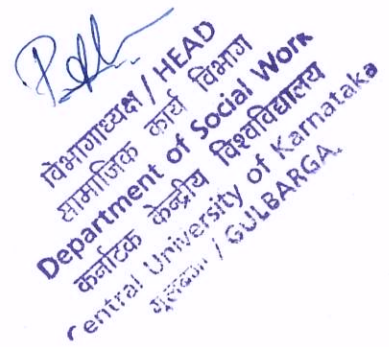 विभागाध्यक्ष / HEAD
सामाजिक कार्य विभाग
Department of Social Work
कर्नाटक केन्द्रीय विश्वविद्यालय
Central University of Karnataka
/ GULBARGA.